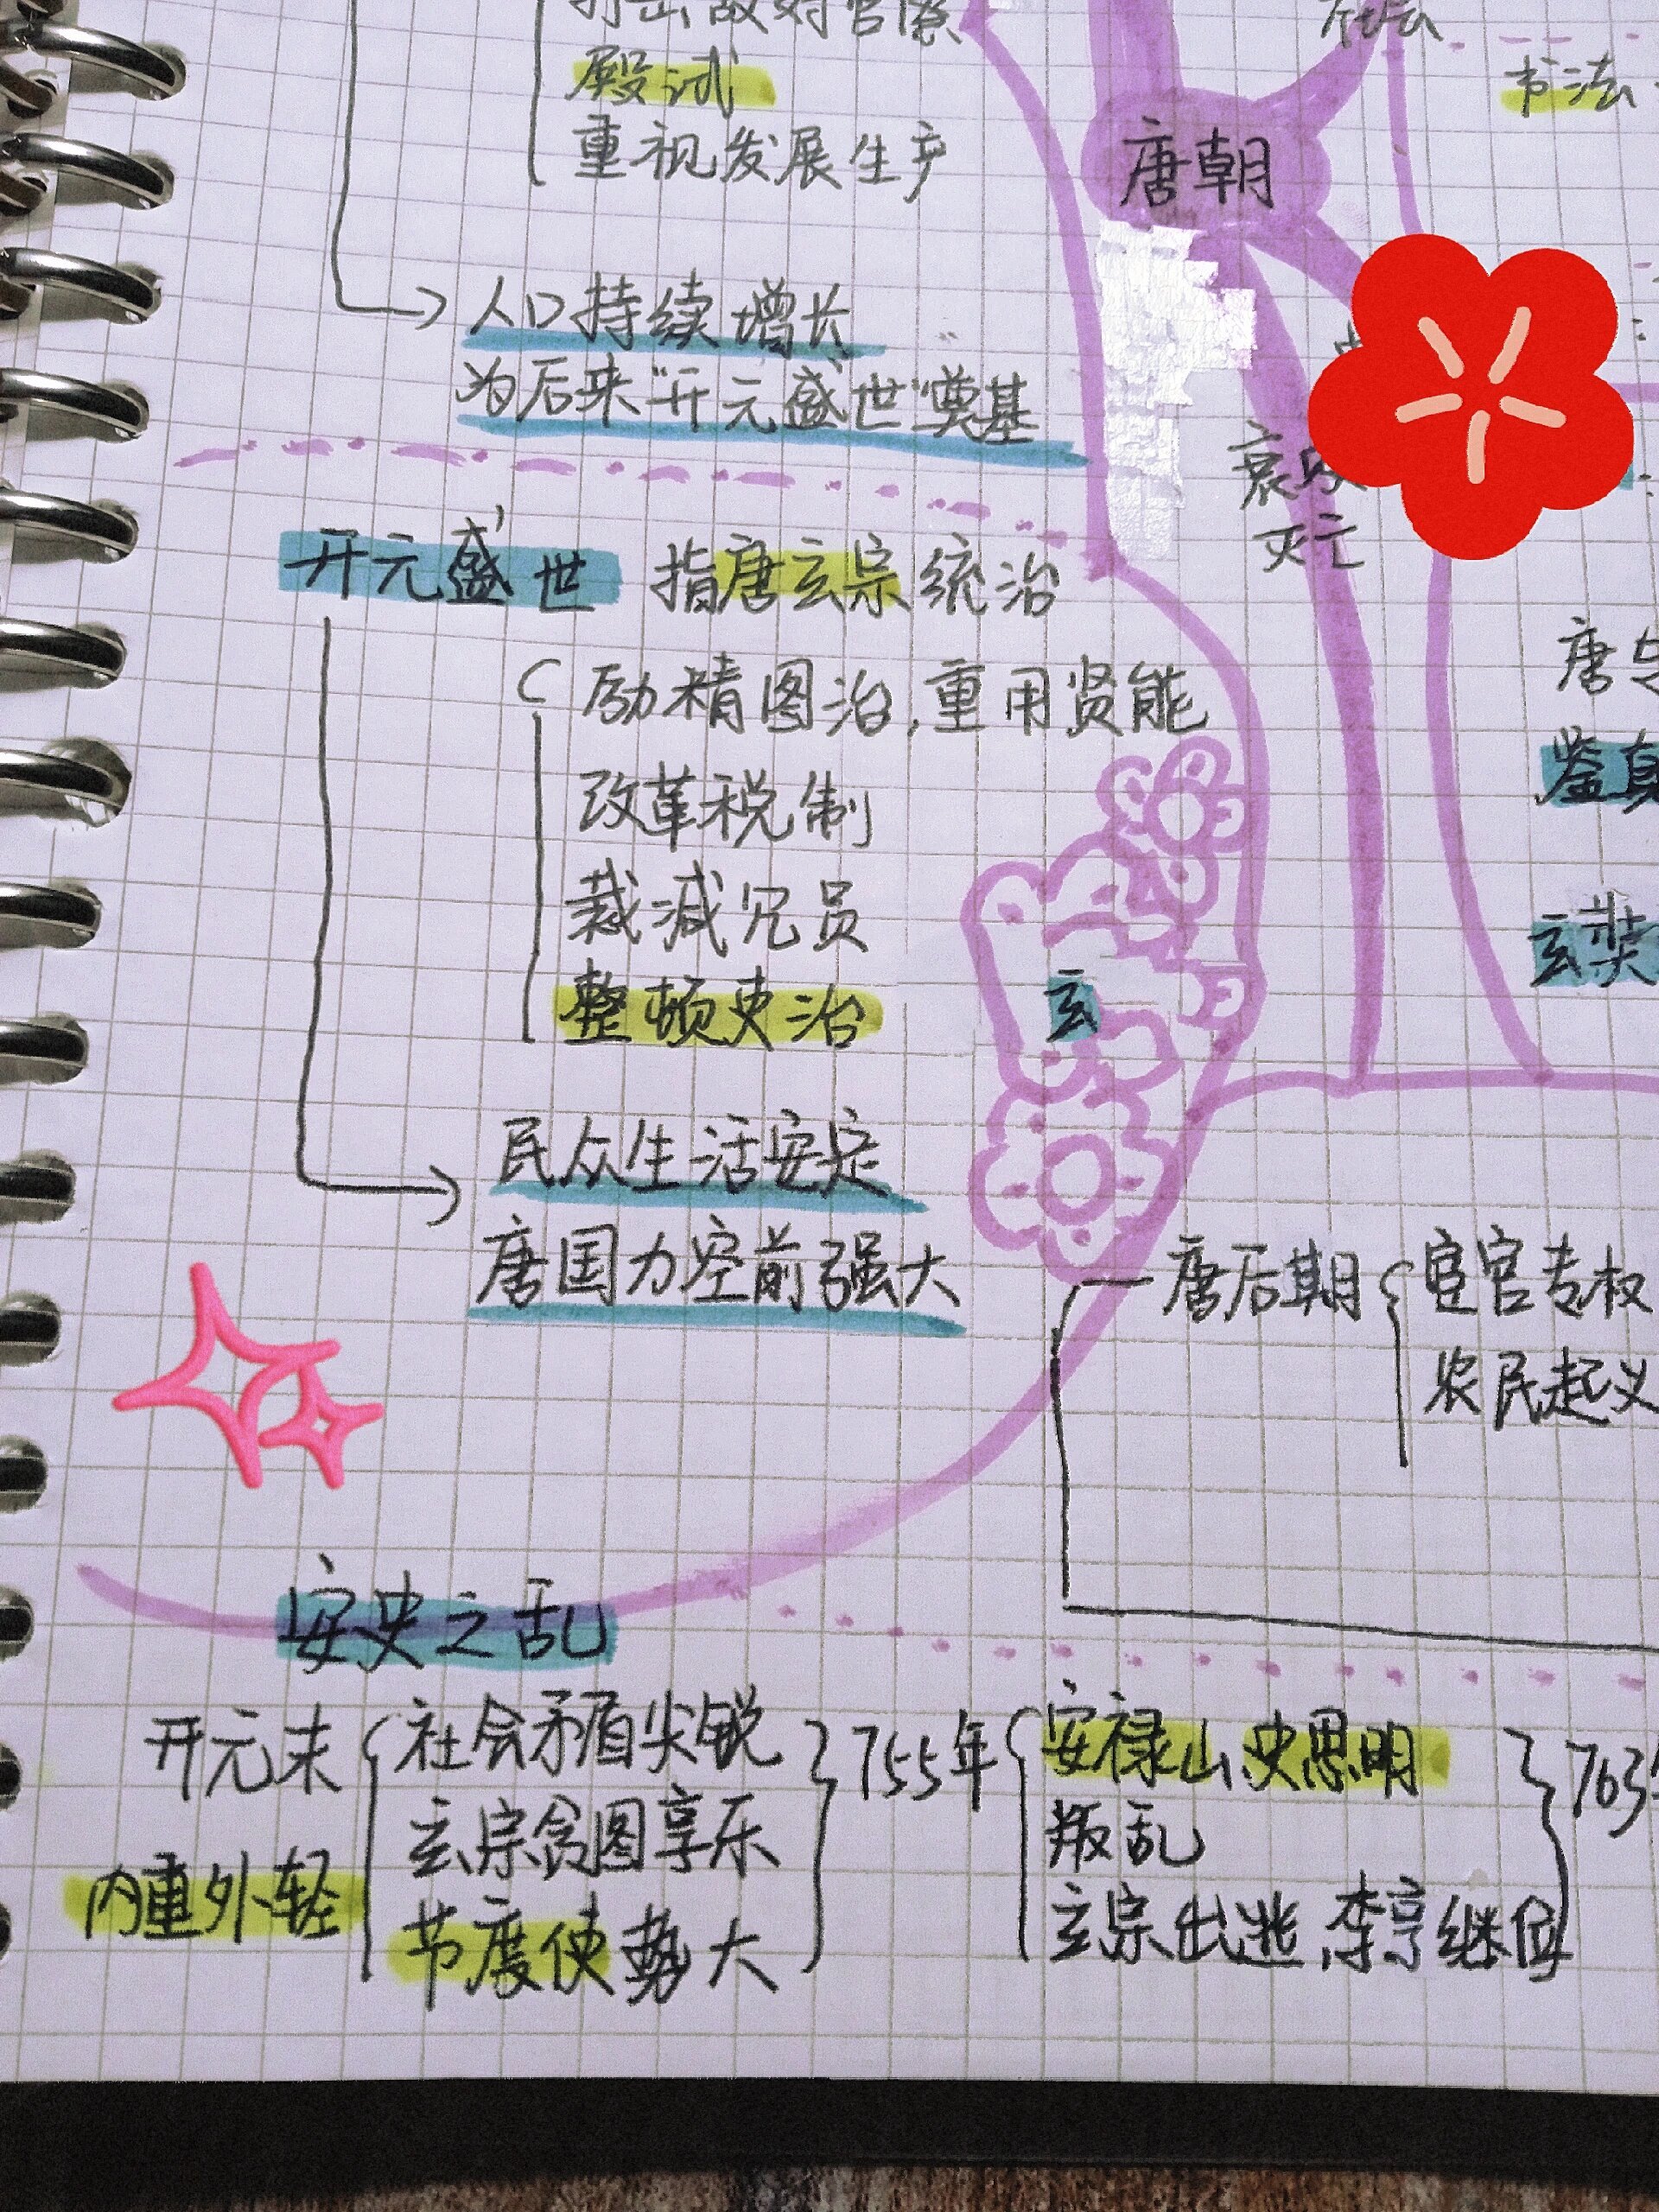 殿试
重视发展生产
人口持续增长
为后来“开元盛世”奠基
唐朝
书法
灭亡
开元盛世 指唐玄宗统治
励精图治,重用贤能
改革税制
裁减冗员
整顿吏治
民众生活安定
唐国力空前强大
玄
鉴真
玄奘
唐后期
宦官专权
农民起义
安史之乱
开元末
内重外轻
社会矛盾尖锐
玄宗贪图享乐
节度使势大
755年
安禄山、史思明
叛乱
玄宗出逃,李亨继位
763年